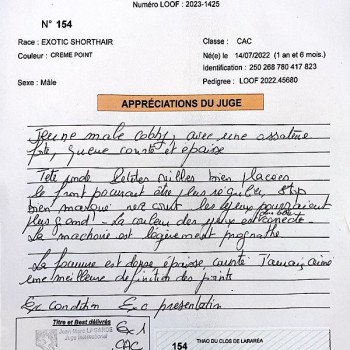 Numéro LOOF : 2023-1425
N° 154
Race : EXOTIC SHORTHAIR
Classe : CAC
Couleur : CREME POINT
Né(e) le 14/07/2022 (1 an et 6 mois.)
Identification : 250 268 780 417 823
Sexe : Mâle
Pedigree : LOOF 2022.45680
APPRÉCIATIONS DU JUGE
Jeune male cobby, avec une ossature
forte, queue courte et épaisse
Tete ronde petites oreilles bien placees
le front pourrait être plus régulier, stop
bien marqué nez court les yeux pourraient
plus grand - la couleur des yeux est correcte -
La machoire est légèrement prognathe
La fourrure est douce épaisse, courte J'aurais aimé
une meilleure definition des points
Exc condition Exc presentation
Titre et Best délivrés
Juge International
Ex 1
CAC
154
THAO DU CLOS DE LARAREA